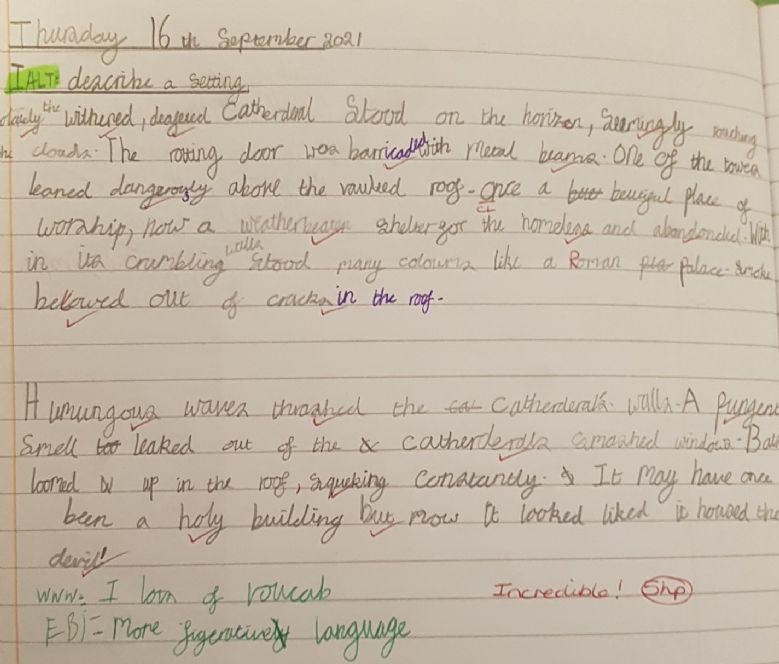 Thursday 16th September 2021
IALT: describe a setting
the
withered, deagered Catherderal stood on the horizon, seemingly touching
clouds. The rotting door was barricaded with metal beams. One of the towers
leaned dangerously above the vaulted roof. Once a beutiful place of
worship, now a weatherbeaten shelter for the homeless and abandonded. With
walls
in its crumbling stood many colours like a Roman palace. Smoke
bellowed out of cracks in the roof.
Humungous waves thrashed the Catherderals walls. A pungent
smell leaked out of the catherderals smashed windows. Bats
loomed up in the roof, squeking constantly. It may have once
been a holy building but now it looked liked it housed the
devil!
WWW: I lots of voucab
Incredible! 5hp
EBI = More figerative language